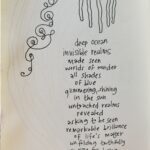 deep ocean
invisible realms
made seen
worlds of wonder
all shades
of blue
glimmering, shining
in the sun
untouched realms
revealed
asking to be seen
remarkable brilliance
of life's matter
unfolding faithfully